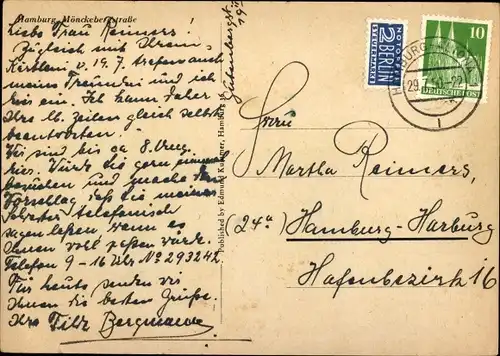 Hamburg, Mönckebergstraße
Liebe Frau Reimers!
Zugleich mit Ihrem
v. 19.7. trafen auch
meine Freundin und ich
hier ein. Ich kann daher
Ihre lb. Zeilen gleich selbst
beantworten.
Wir sind bis ca 8. Aug.
hier. Würde Sie gern einmal
besuchen und mache den
Vorschlag, daß Sie meiner
telefonisch
sagen lassen, wann es
Ihnen wohl passen würde.
Telefon 9-16 Uhr No 293242
Für heute senden wir
Ihnen die besten Grüße.
Ihre Bergmann
Published by Edmund Hamburg
NOTOPFER
2 BERLIN
STEUERMARKE
10
DEUTSCHE POST
HAMBURG-ALTONA
29.7.
1
Frau
Martha Reimers,
(24a) Hamburg-Harburg
Hafenbezirk 16